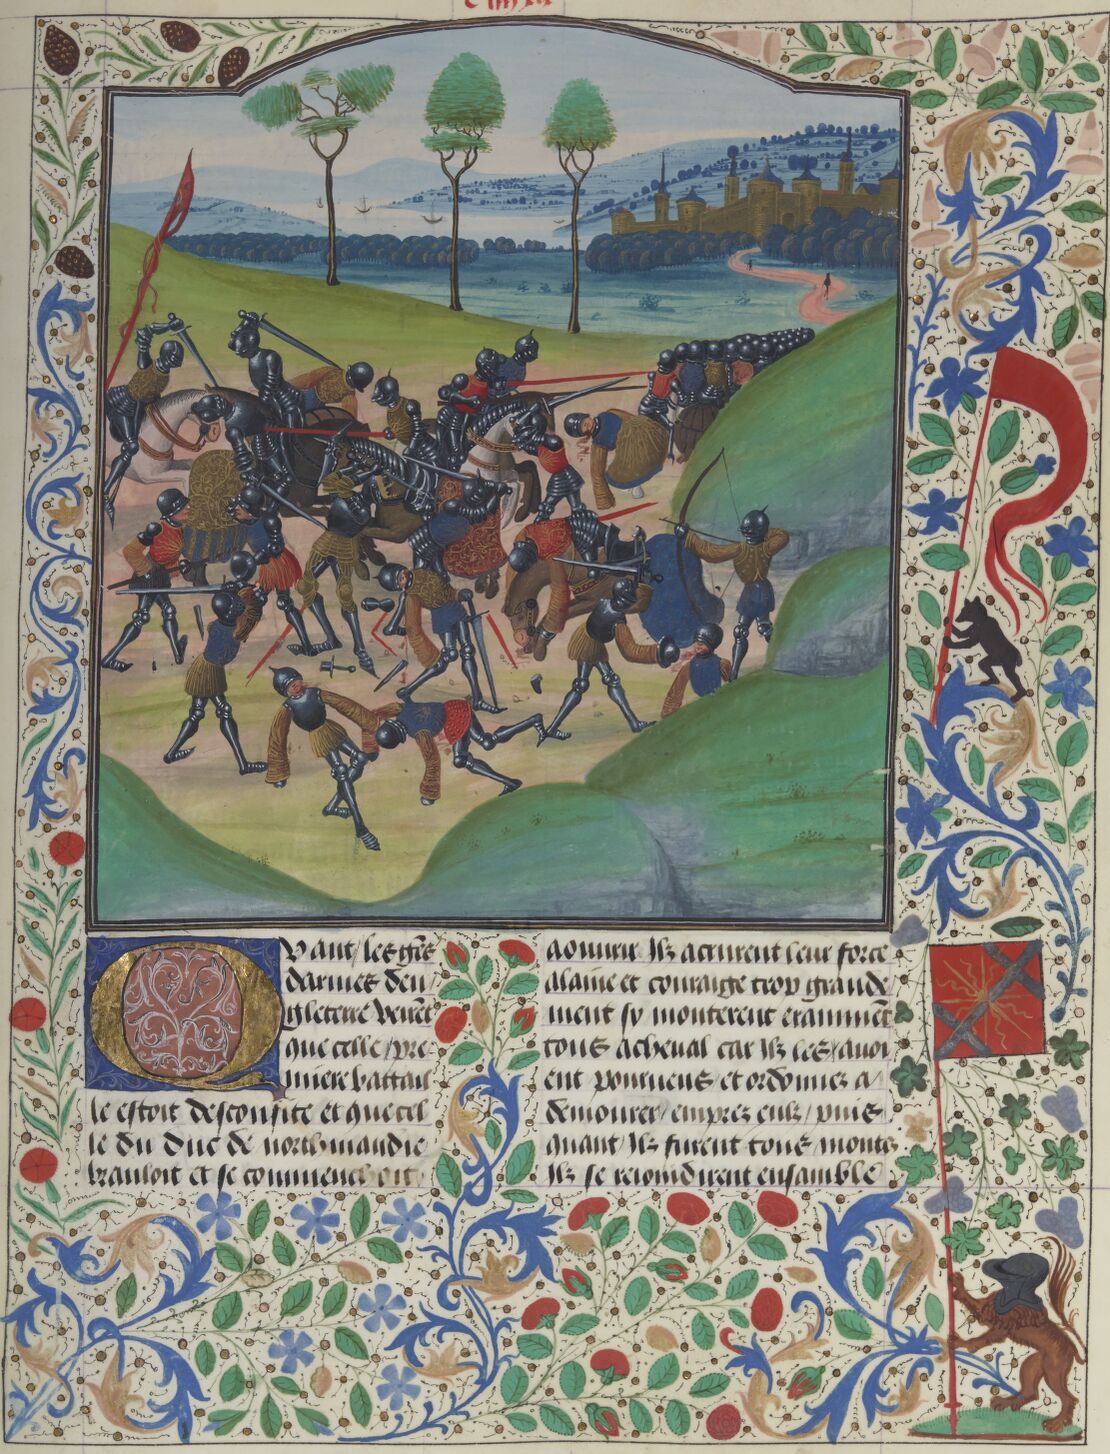 Quant les gẽs
darmes den
gleterre veirẽt
que celle pre
miere battail
le estoit desconfite et que cel
le du duc de northmandie
branloit et se commencoit
a ouurir Ilz acrurent leur force
alaine et couraige trop grande
ment sy monterent erammẽt
tous a cheual car Ilz les auoi
ent pourueus et ordonnez a
demourer emprez eulz puis
quant Ilz furent tous montez
Ilz se reioindirent ensamble